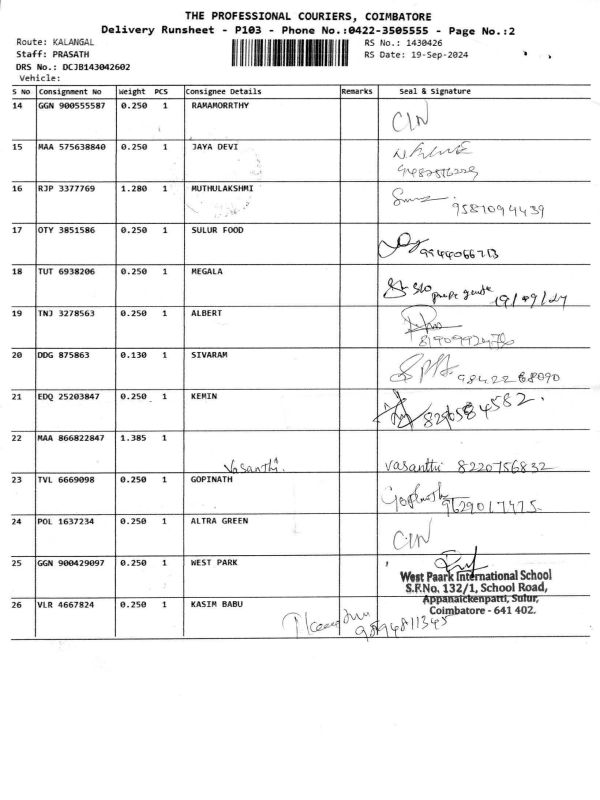 THE PROFESSIONAL COURIERS, COIMBATORE
Delivery Runsheet - P103 - Phone No.:0422-3505555 - Page No.:2
Route: KALANGAL RS No.: 1430426
Staff: PRASATH RS Date: 19-Sep-2024
DRS No.: DCJB143042602
Vehicle:
S No Consignment No Weight PCS Consignee Details Remarks Seal & Signature
14 GGN 900555587 0.250 1 RAMAMORRTHY
CIN
15 MAA 575638840 0.250 1 JAYA DEVI
16 RJP 3377769 1.280 1 MUTHULAKSHMI
9587094439
17 OTY 3851586 0.250 1 SULUR FOOD
9944066713
18 TUT 6938206 0.250 1 MEGALA
S/O
19/09/24
19 TNJ 3278563 0.250 1 ALBERT
20 DDG 875863 0.130 1 SIVARAM
9842268090
21 EDQ 25203847 0.250 1 KEMIN
8240584582.
22 MAA 866822847 1.385 1
Vasanthi. Vasanthi 8220756832
23 TVL 6669098 0.250 1 GOPINATH
Gopinath
9629017475
24 POL 1637234 0.250 1 ALTRA GREEN
CIN
25 GGN 900429097 0.250 1 WEST PARK
West Paark International School
S.F.No. 132/1, School Road,
Appanaickenpatti, Sulur,
Coimbatore - 641 402.
26 VLR 4667824 0.250 1 KASIM BABU
9894811345